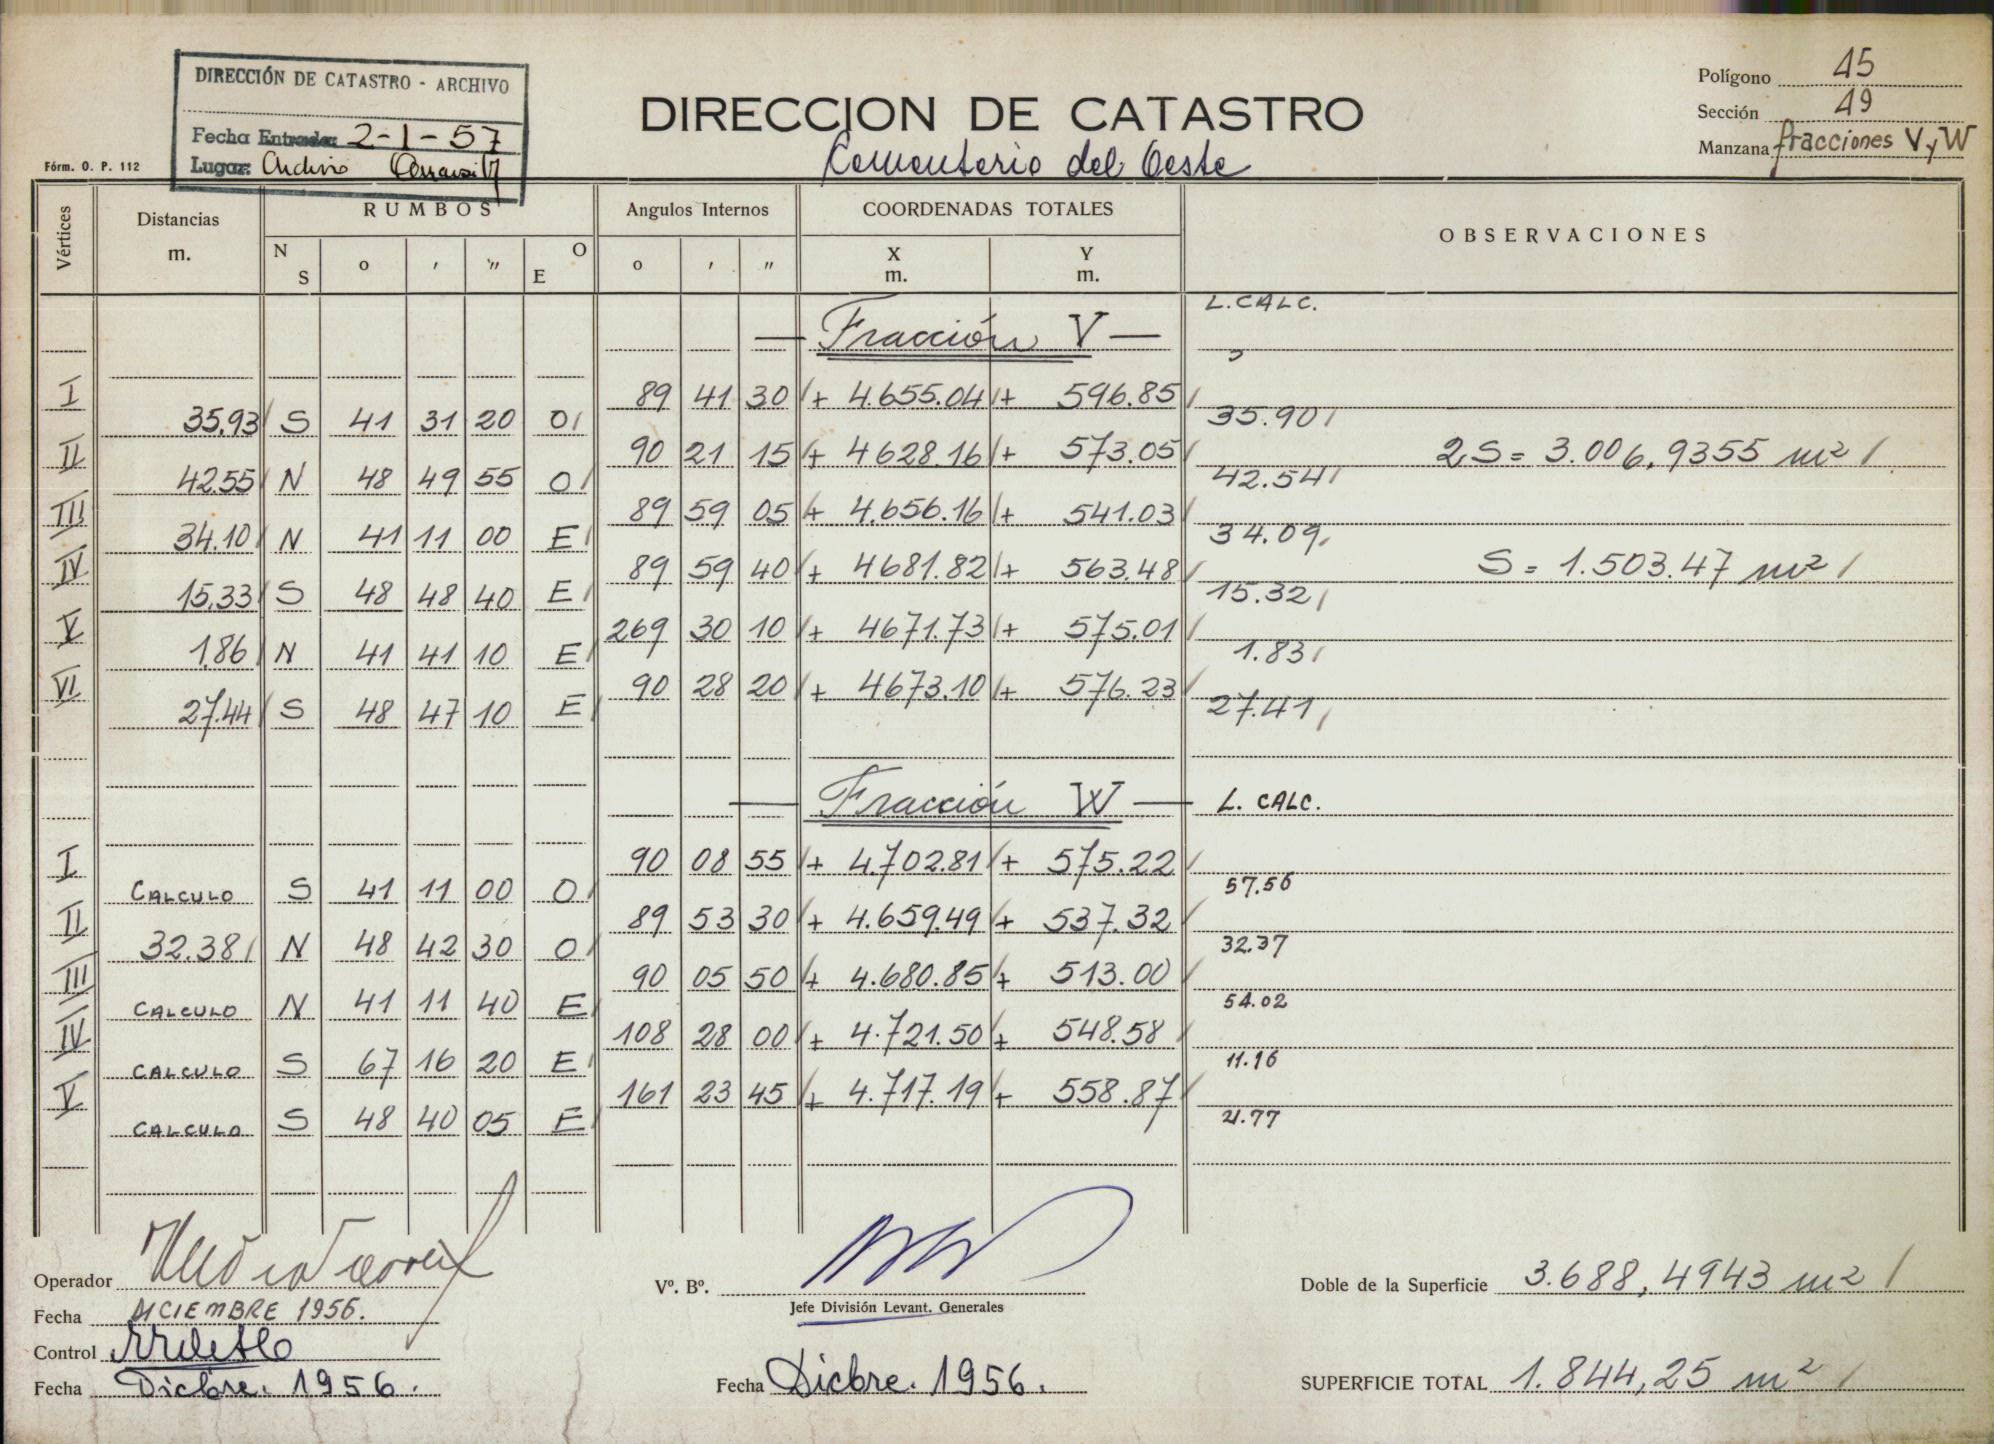 DIRECCIÓN DE CATASTRO - ARCHIVO
Fecha Entrada: 2-1-57
Lugar: Archivo
Fórm. O. P. 112
DIRECCION DE CATASTRO
Cementerio del Oeste
Polígono 45
Sección 49
Manzana fracciones V y W
Vértices Distancias m. RUMBOS N S o ' " O E Angulos Internos o ' " COORDENADAS TOTALES X m. Y m. OBSERVACIONES
— Fracción V — L.CALC.
I 89 41 30 + 4.655.04 + 596.85
35,93 S 41 31 20 O 35.90
II 90 21 15 + 4628.16 + 573.05 2S = 3.006,9355 m²
42.55 N 48 49 55 O 42.54
III 89 59 05 + 4.656.16 + 541.03
34.10 N 41 11 00 E 34.09
IV 89 59 40 + 4681.82 + 563.48 S = 1.503.47 m²
15,33 S 48 48 40 E 15.32
V 269 30 10 + 4671.73 + 575.01
1.86 N 41 41 10 E 1.83
VI 90 28 20 + 4673.10 + 576.23
27.44 S 48 47 10 E 27.41
— Fracción W — L. CALC.
I 90 08 55 + 4.702.81 + 575.22
CALCULO S 41 11 00 O 57.56
II 89 53 30 + 4.659.49 + 537.32
32.38 N 48 42 30 O 32.37
III 90 05 50 + 4.680.85 + 513.00
CALCULO N 41 11 40 E 54.02
IV 108 28 00 + 4.721.50 + 548.58
CALCULO S 67 16 20 E 11.16
V 161 23 45 + 4.717.19 + 558.87
CALCULO S 48 40 05 E 21.77
Operador
Fecha DICIEMBRE 1956.
Control
Fecha Dicbre. 1956.
Vº. Bº.
Jefe División Levant. Generales
Fecha Dicbre. 1956.
Doble de la Superficie 3.688,4943 m²
SUPERFICIE TOTAL 1.844,25 m²